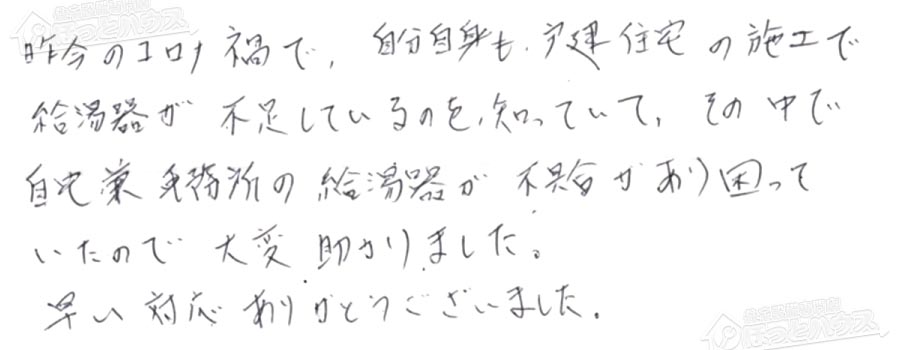 昨今のコロナ禍で、自分自身も、戸建住宅の施工で
給湯器が不足しているのを、知っていて、その中で
自宅兼事務所の給湯器が不具合があり困って
いたので大変助かりました。
早い対応ありがとうございました。
ほっとハウス
ほっとハウス